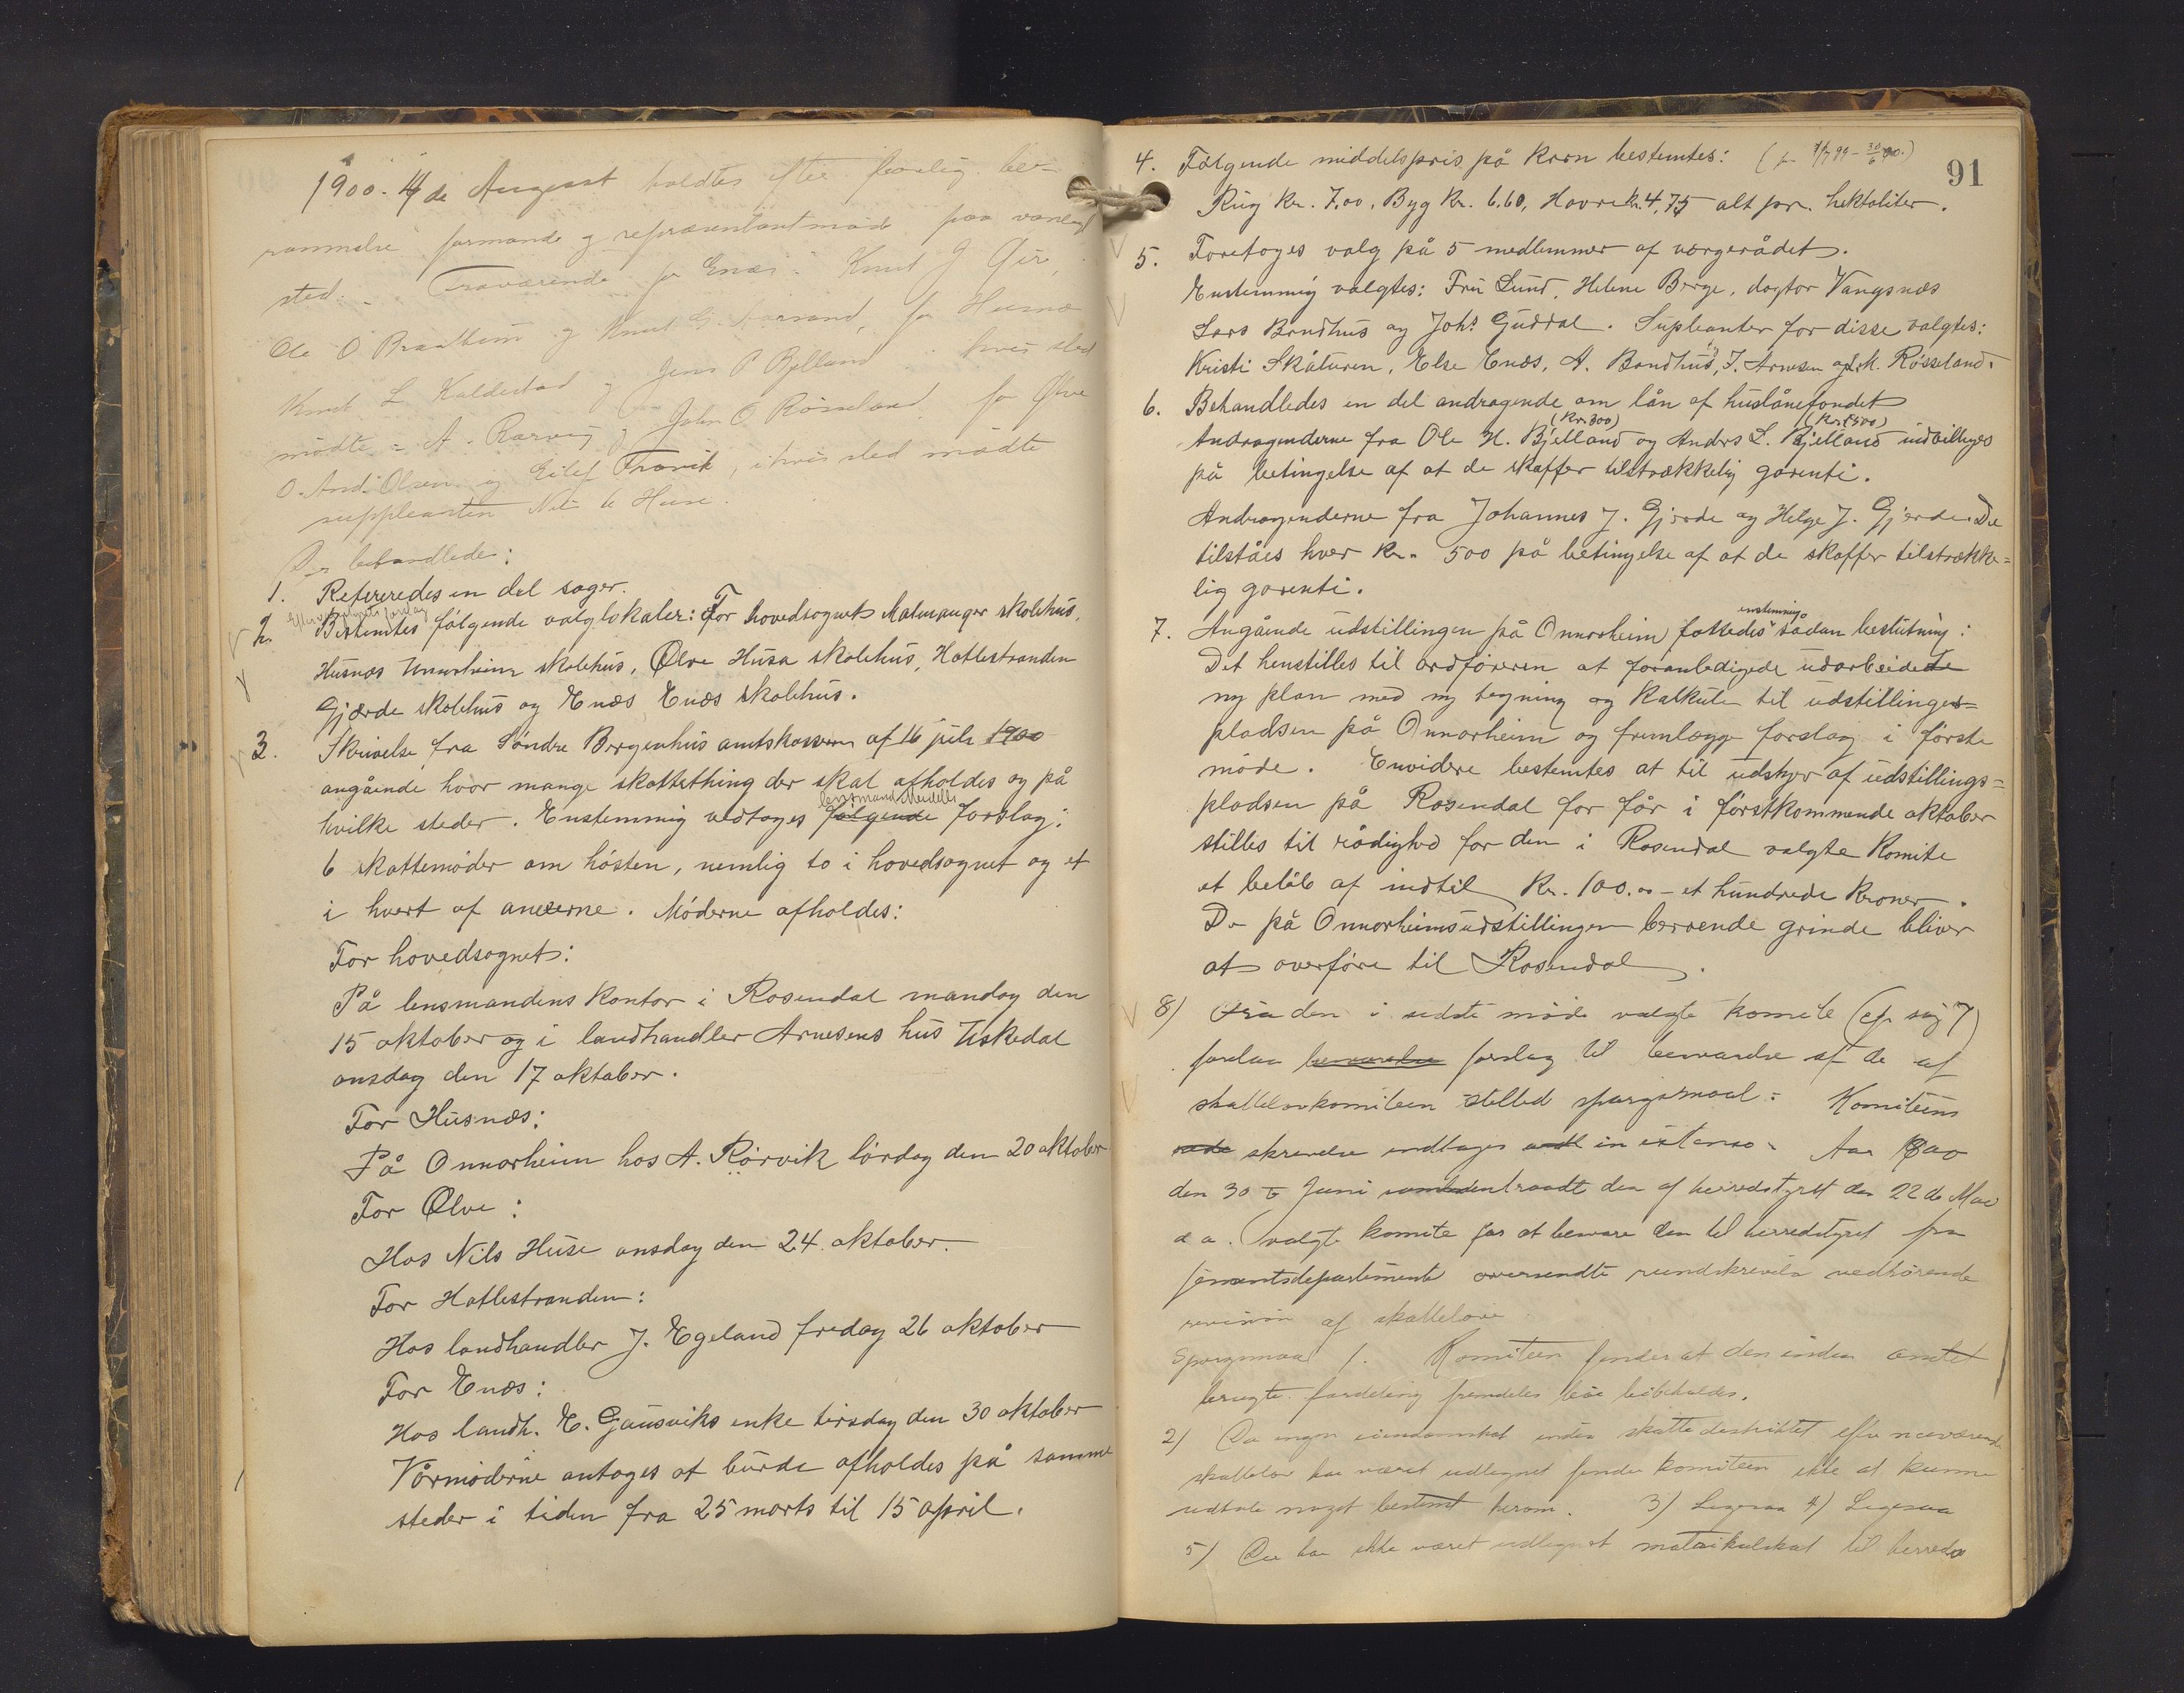 1900. 4de August holdtes efter lovlig be-
rammelse formands og repræsentantmøde paa vanlig
sted. Fraværende for Enæs: Knut J Øie,
Ole O Braatheim og Knut G. for Husnæs
Knut L Kaldestad og Jens P Bjelland hvis sted
mødte A. Rørvig og John O Røsseland for Ølve
O. And. Olsen og Eilef Travik, i hvis sted mødte
suppleanten Nils Huse.
Der behandledes:
1. Refereredes en del sager.
Efter forslag
2. Bestemtes følgende valglokaler: For hovedsognet Malmanger skolehus,
Husnæs Unnarheim skolehus, Ølve Husa skolehus, Hatlestranden
Gjærde skolehus og Enæs Enæs skolehus.
3. Skrivelse fra Søndre Bergenhus amtskasserer af 16 juli 1900
angående hvor mange skattething der skal afholdes og på
lensmand Meidells
hvilke steder. Enstemmig vedtoges følgende forslag:
6 skattemøder om høsten, nemlig to i hovedsognet og et
i hvert af anexerne. Møderne afholdes:
For hovedsognet:
På lensmandens kontor i Rosendal mandag den
15 oktober og i landhandler Arnesens hus Uskedal
onsdag den 17 oktober.
For Husnæs:
På Onnarheim hos A. Rørvik lørdag den 20 oktober
For Ølve:
Hos Nils Huse onsdag den 24. oktober.
For Hatlestranden:
Hos landhandler J. Egeland fredag 26 oktober
For Enæs:
Hos landh. E. Gausviks enke tirsdag den 30 oktober
Vårmøderne antoges at burde afholdes på samme
steder i tiden fra 25 marts til 15 april.
91
4. Følgende middelspris på korn bestemtes: (fr 1/7 99 - 30/6 90.)
Rug kr. 7,00, Byg kr. 6.60, Havre kr. 4,75 alt pr. hektoliter.
5. Foretoges valg på 5 medlemmer af værgerådet.
Enstemmig valgtes: Fru Lund, Helene Berge, doktor Vangsnæs
Lars Bondhus og Johs Guddal. Supleanter for disse valgtes:
Kristi Skåturen, Else Enæs, A. Bondhus, J. Arnesen og L. M. Røsseland.
6. Behandledes en del andragende om lån af huslånefondet
(Kr. 300) (Kr. 500)
Andragenderne fra Ole H. Bjelland og Anders L. Bjelland indvilliges
på betingelse af at de skaffer tilstrækkelig garenti.
Andragenderne fra Johannes J. Gjerde og Helge J. Gjerde. De
tilståes hver kr. 500 på betingelse af at de skaffer tilstrække=
lig garenti.
enstemmig
7. Angående udstillingen på Onnarheim fattedes sådan beslutning:
Det henstilles til ordføreren at foranledigede udarbeidede
ny plan med ny tegning og kalkule til udstillings=
pladsen på Onnarheim og fremlægge forslag i første
møde. Envidere bestemtes at til udstyr af udstillings=
pladsen på Rosendal for får i førstkommende oktober
stilles til rådighed for den i Rosendal valgte komite
et beløb af indtil Kr. 100.00 - et hundrede kroner.
De på Onnarheimsudstillingen beroende grinde bliver
at overføre til Rosendal.
8) Fra den i sidste møde valgte komite (cfr sag 7)
forelaa besvarelse forslag til besvarelse af de af
skattelovkomiteen stilled spørgsmaal: Komiteens
skrivelse indtages in extenso. Aar 1900
den 30 te Juni sammentraadte den af herredstyret den 22 de Mai
d. a. valgte komite for at besvare den til herredstyret fra
finantsdepartementet oversendte rundskrivelse vedrørende
revision af skattelove.
Spørgsmaal 1. Komiteen finder at den inden amtet
brugte fordeling fremdeles bør bibeholdes.
2) Da ingen eiendomsskat inden skattedistriktet efter nuværende
skattelov har været udlignet finder komiteen ikke at kunne
udtale noget bestemt herom. 3) Ligesaa 4) Ligesaa
5) Der har ikke været udlignet matrikulskat til herreds